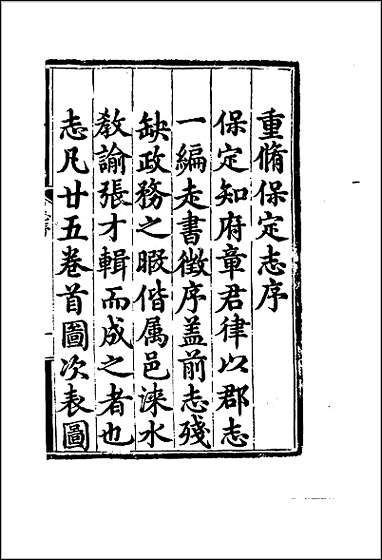 重脩保定志序
保定知府章君律以郡志
一編走書徴序盖前志殘
缺政務之暇偕属邑淶水
教諭張才輯而成之者也
志凡廿五卷首圖次表圖